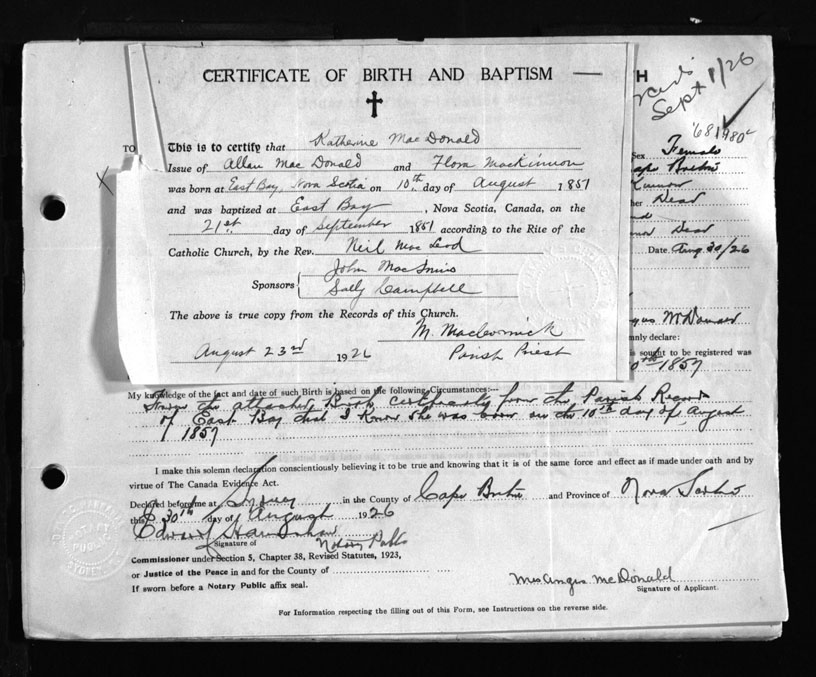 CERTIFICATE OF BIRTH AND BAPTISM
This is to certify that Katherine Mac Donald
Issue of Allan Mac Donald and Flora MacKinnon
was born at East Bay, Nova Scotia on 10th day of August 1851
and was baptized at East Bay, Nova Scotia, Canada, on the
21st day of September 1851 according to the Rite of the
Catholic Church, by the Rev. Neil Mac Leod
Sponsors John MacInnis
Sally Campbell
The above is true copy from the Records of this Church.
M. MacCormick
August 23rd 1926 Parish Priest
TO
H
Sept 1/26
Sex Female
Dear
Dear
Date. Aug 30/26
sought to be registered was
1857
My knowledge of the fact and date of such Birth is based on the following Circumstances:—
From the attached Birth Certificate from the Parish Record
of East Bay that I know she was born on the 10th day of August
1857
I make this solemn declaration conscientiously believing it to be true and knowing that it is of the same force and effect as if made under oath and by
virtue of The Canada Evidence Act.
Declared before me at Sydney in the County of Cape Breton and Province of Nova Scotia
this 30th day of August 1926
Edward
Signature of Notary Public
Commissioner under Section 5, Chapter 38, Revised Statutes, 1923,
or Justice of the Peace in and for the County of
If sworn before a Notary Public affix seal.
Mrs Angus McDonald
Signature of Applicant.
For Information respecting the filling out of this Form, see Instructions on the reverse side.